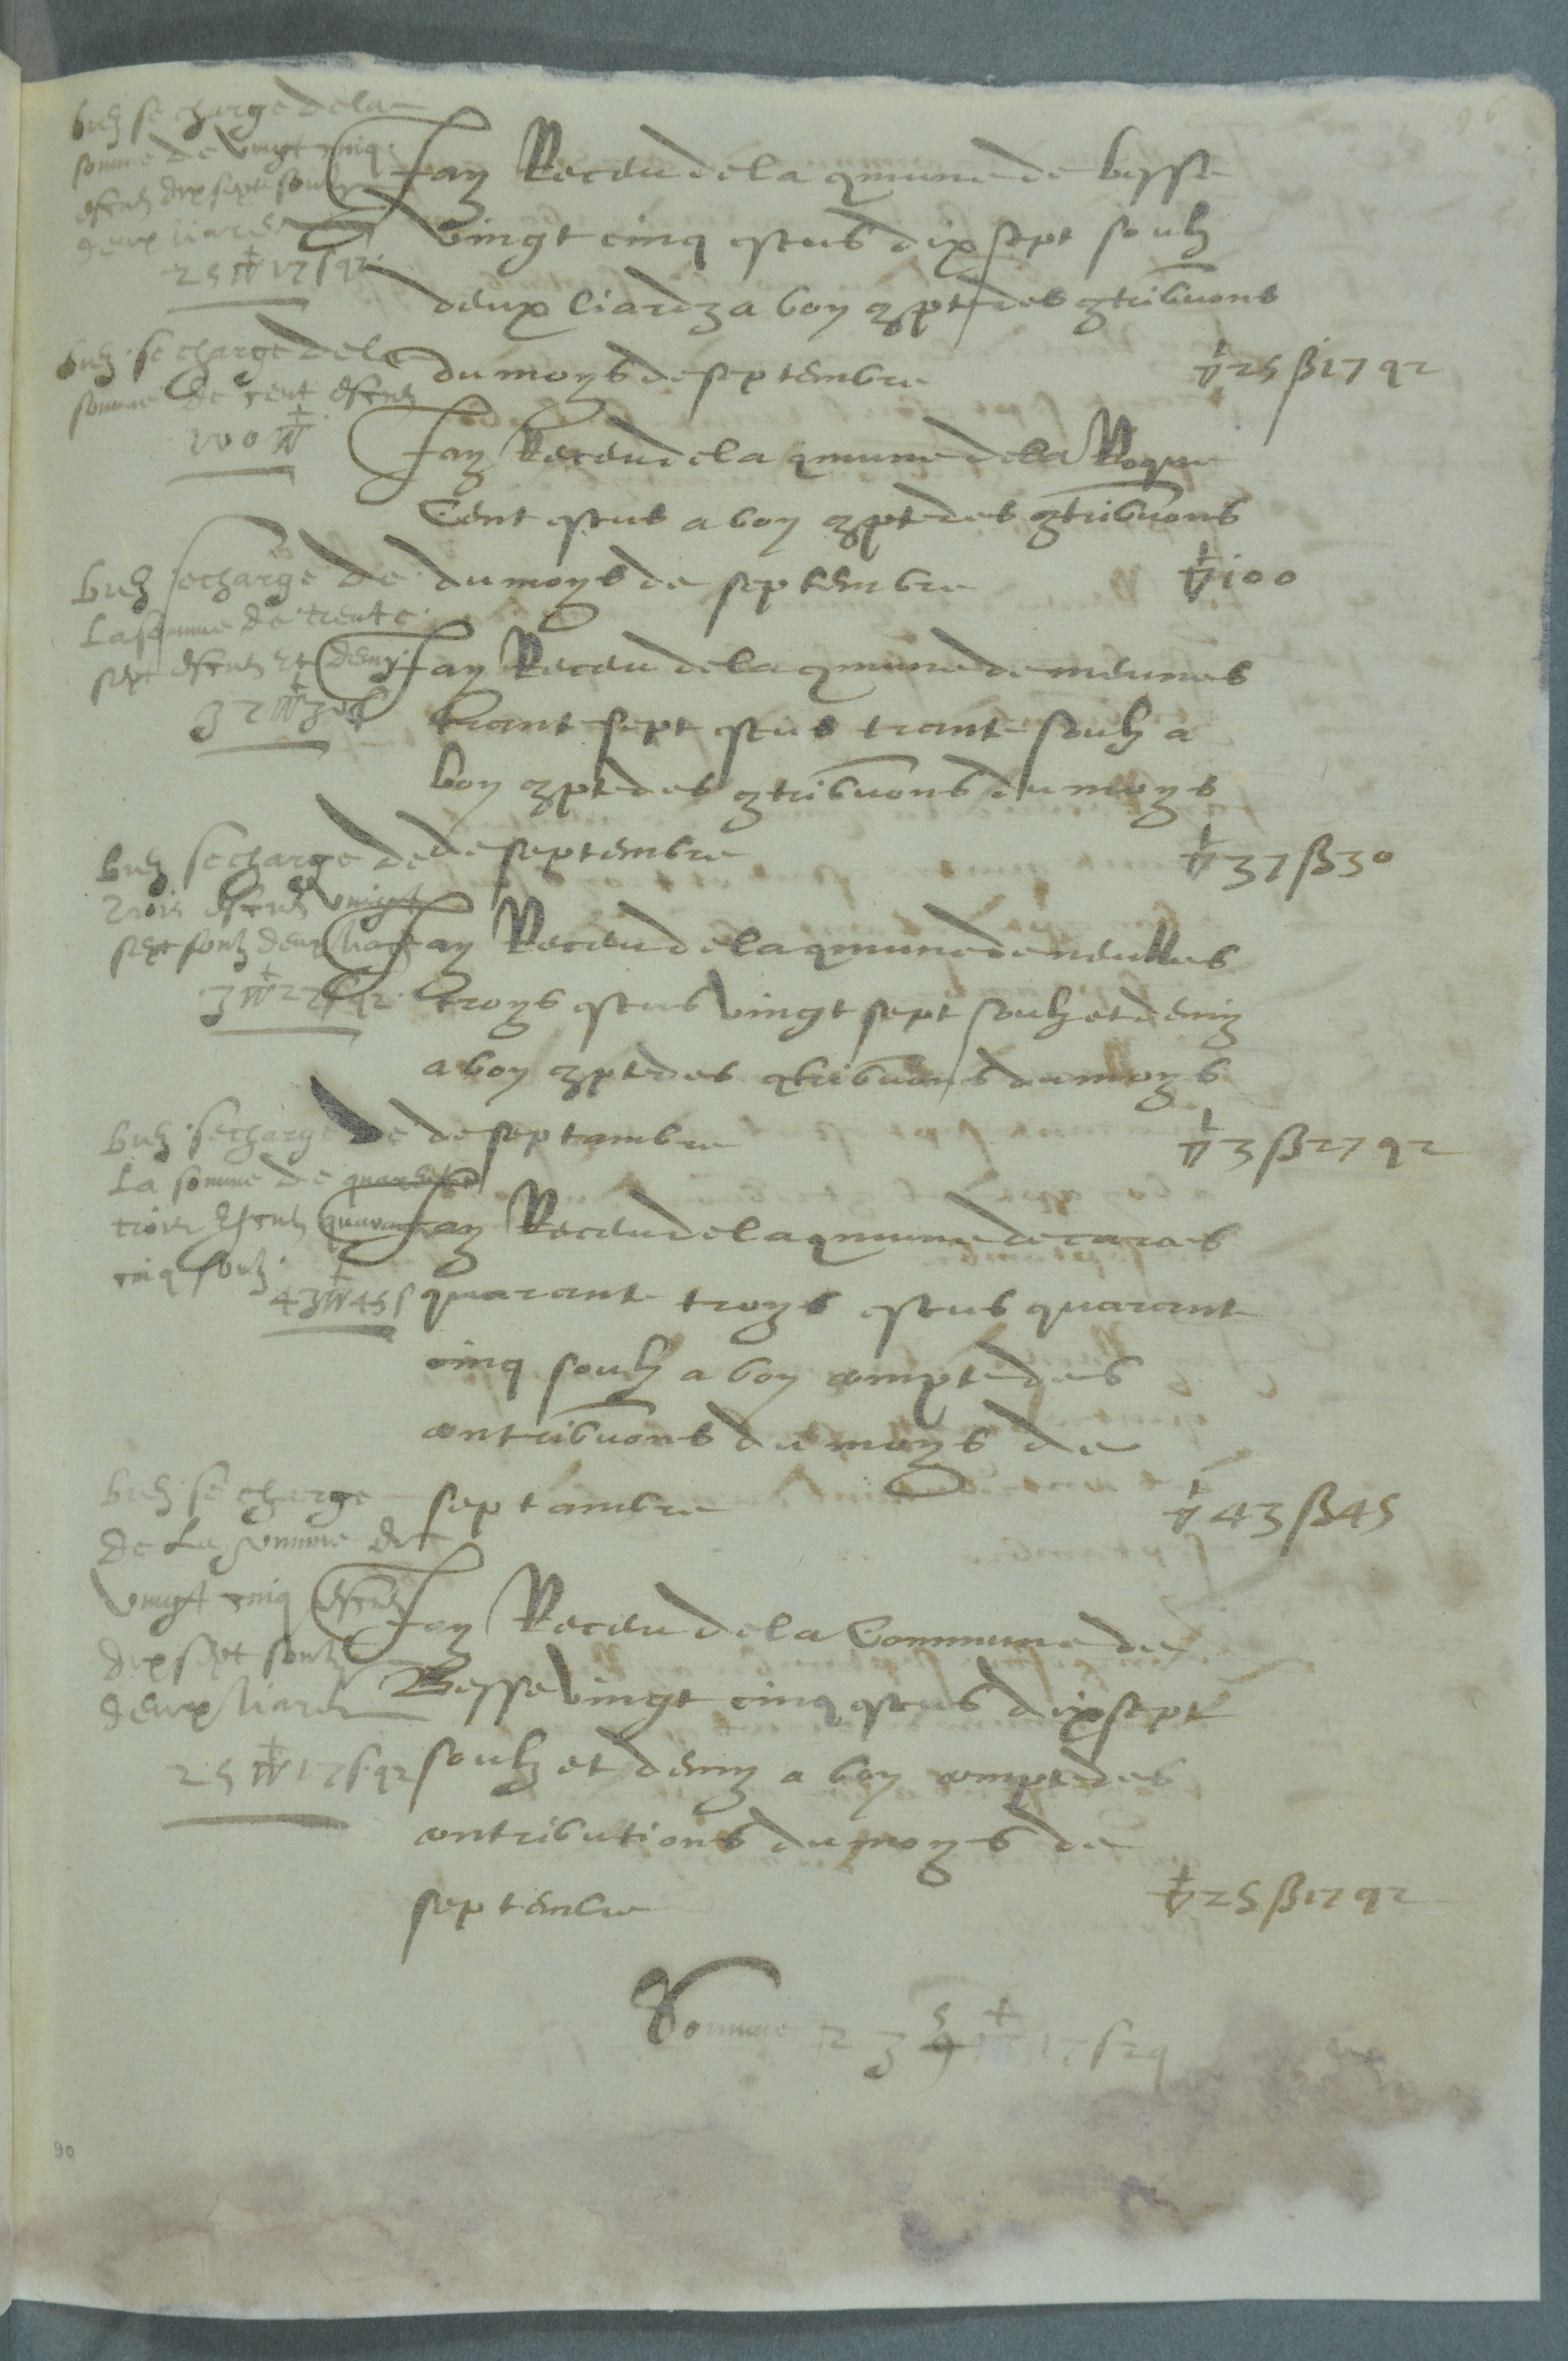 90
bien se charge de la
somme de vingt cinq
escuz dix sept soulz
deux liardz
25 17 s q2
Jay Receu de la qmune de besse
vingt cinq escus dix sept soulz
deux liardz a bon 9pte des 9tribuons
du moys de septembre 25 ß 17 q2
bien se charge de la
somme de cent escuz
100
Jay Receu de la qmune de la Roque
Cent escus a bon 9pte des 9tribuons
du moys de septembre 100
bien se charge de
La somme de trente
sept escuz et demy
37 30 s
Jay Receu de la qmune de meunes
trante sept escus trante soulz a
bon 9pte des 9tribuons du moys
de septembre 37 ß 30
bien se charge de
trois escuz vingt
sept soulz deux liardz
3 27 s q2
Jay Receu de la qmune de neulles
troys escus vingt sept soulz et demy
a bon 9pte des 9tribuons du moys
de septambre 3 ß 27 q2
bien se charge de
La somme de quarante
trois escuz quarante
cinq soulz
43 45 s
Jay Receu de la qmune de carces
quarante troys escus quarante
cinq soulz a bon compte des
contribuons du moys de
septambre 43 ß 45
bien se charge
de La somme de
vingt cinq escuz
dix sept soulz
deux liardz
25 17 s q2
Jay Receu de la Commune de
Besse vingt cinq escus dix sept
soulz et demy a bon compte des
contributions du moys de
septembre 25 ß 17 q2
Somme 235 17 s 2 q
90